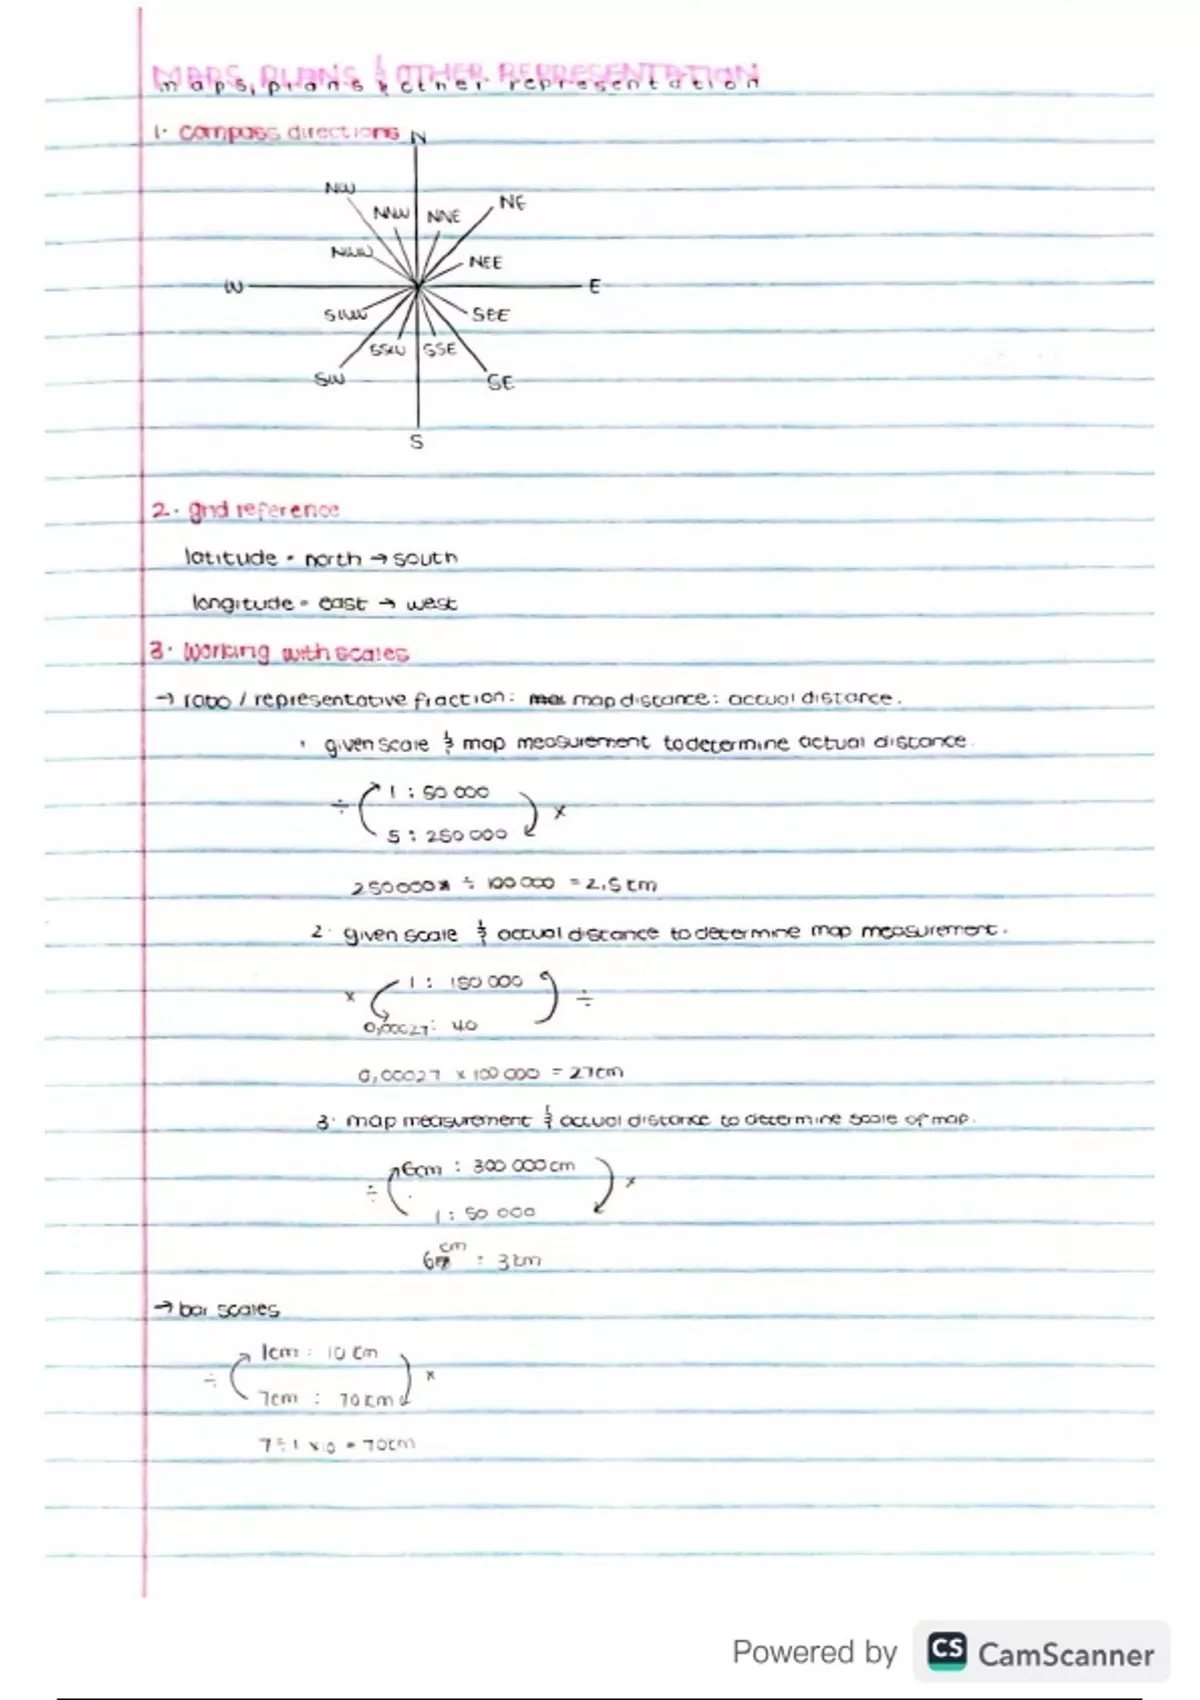 MAPS, PLANS & OTHER REPRESENTATION
maps, plans & other representation
1. compass directions N
NW
NE
NNW NNE
NWW
NEE
W E
SWW
SEE
SSW SSE
SW
SE
S
2. grid reference
latitude = north → south
longitude = east → west
3. Working with scales
→ ratio / representative fraction: map distance: actual distance.
1 given scale & map measurement to determine actual distance.
÷ 1 : 50 000 ×
5 : 250 000
250 000 ÷ 100 000 = 2,5 km
2. given scale & actual distance to determine map measurement.
× 1 : 150 000 ÷
0,00027 : 40
0,00027 × 100 000 = 27cm
3. map measurement & actual distance to determine scale of map.
÷ 6cm : 300 000cm ×
1 : 50 000
6 cm : 3km
→ bar scales
÷ 1cm : 10 km ×
7cm : 70 km
7 ÷ 1 × 10 = 70km
Powered by CS CamScanner